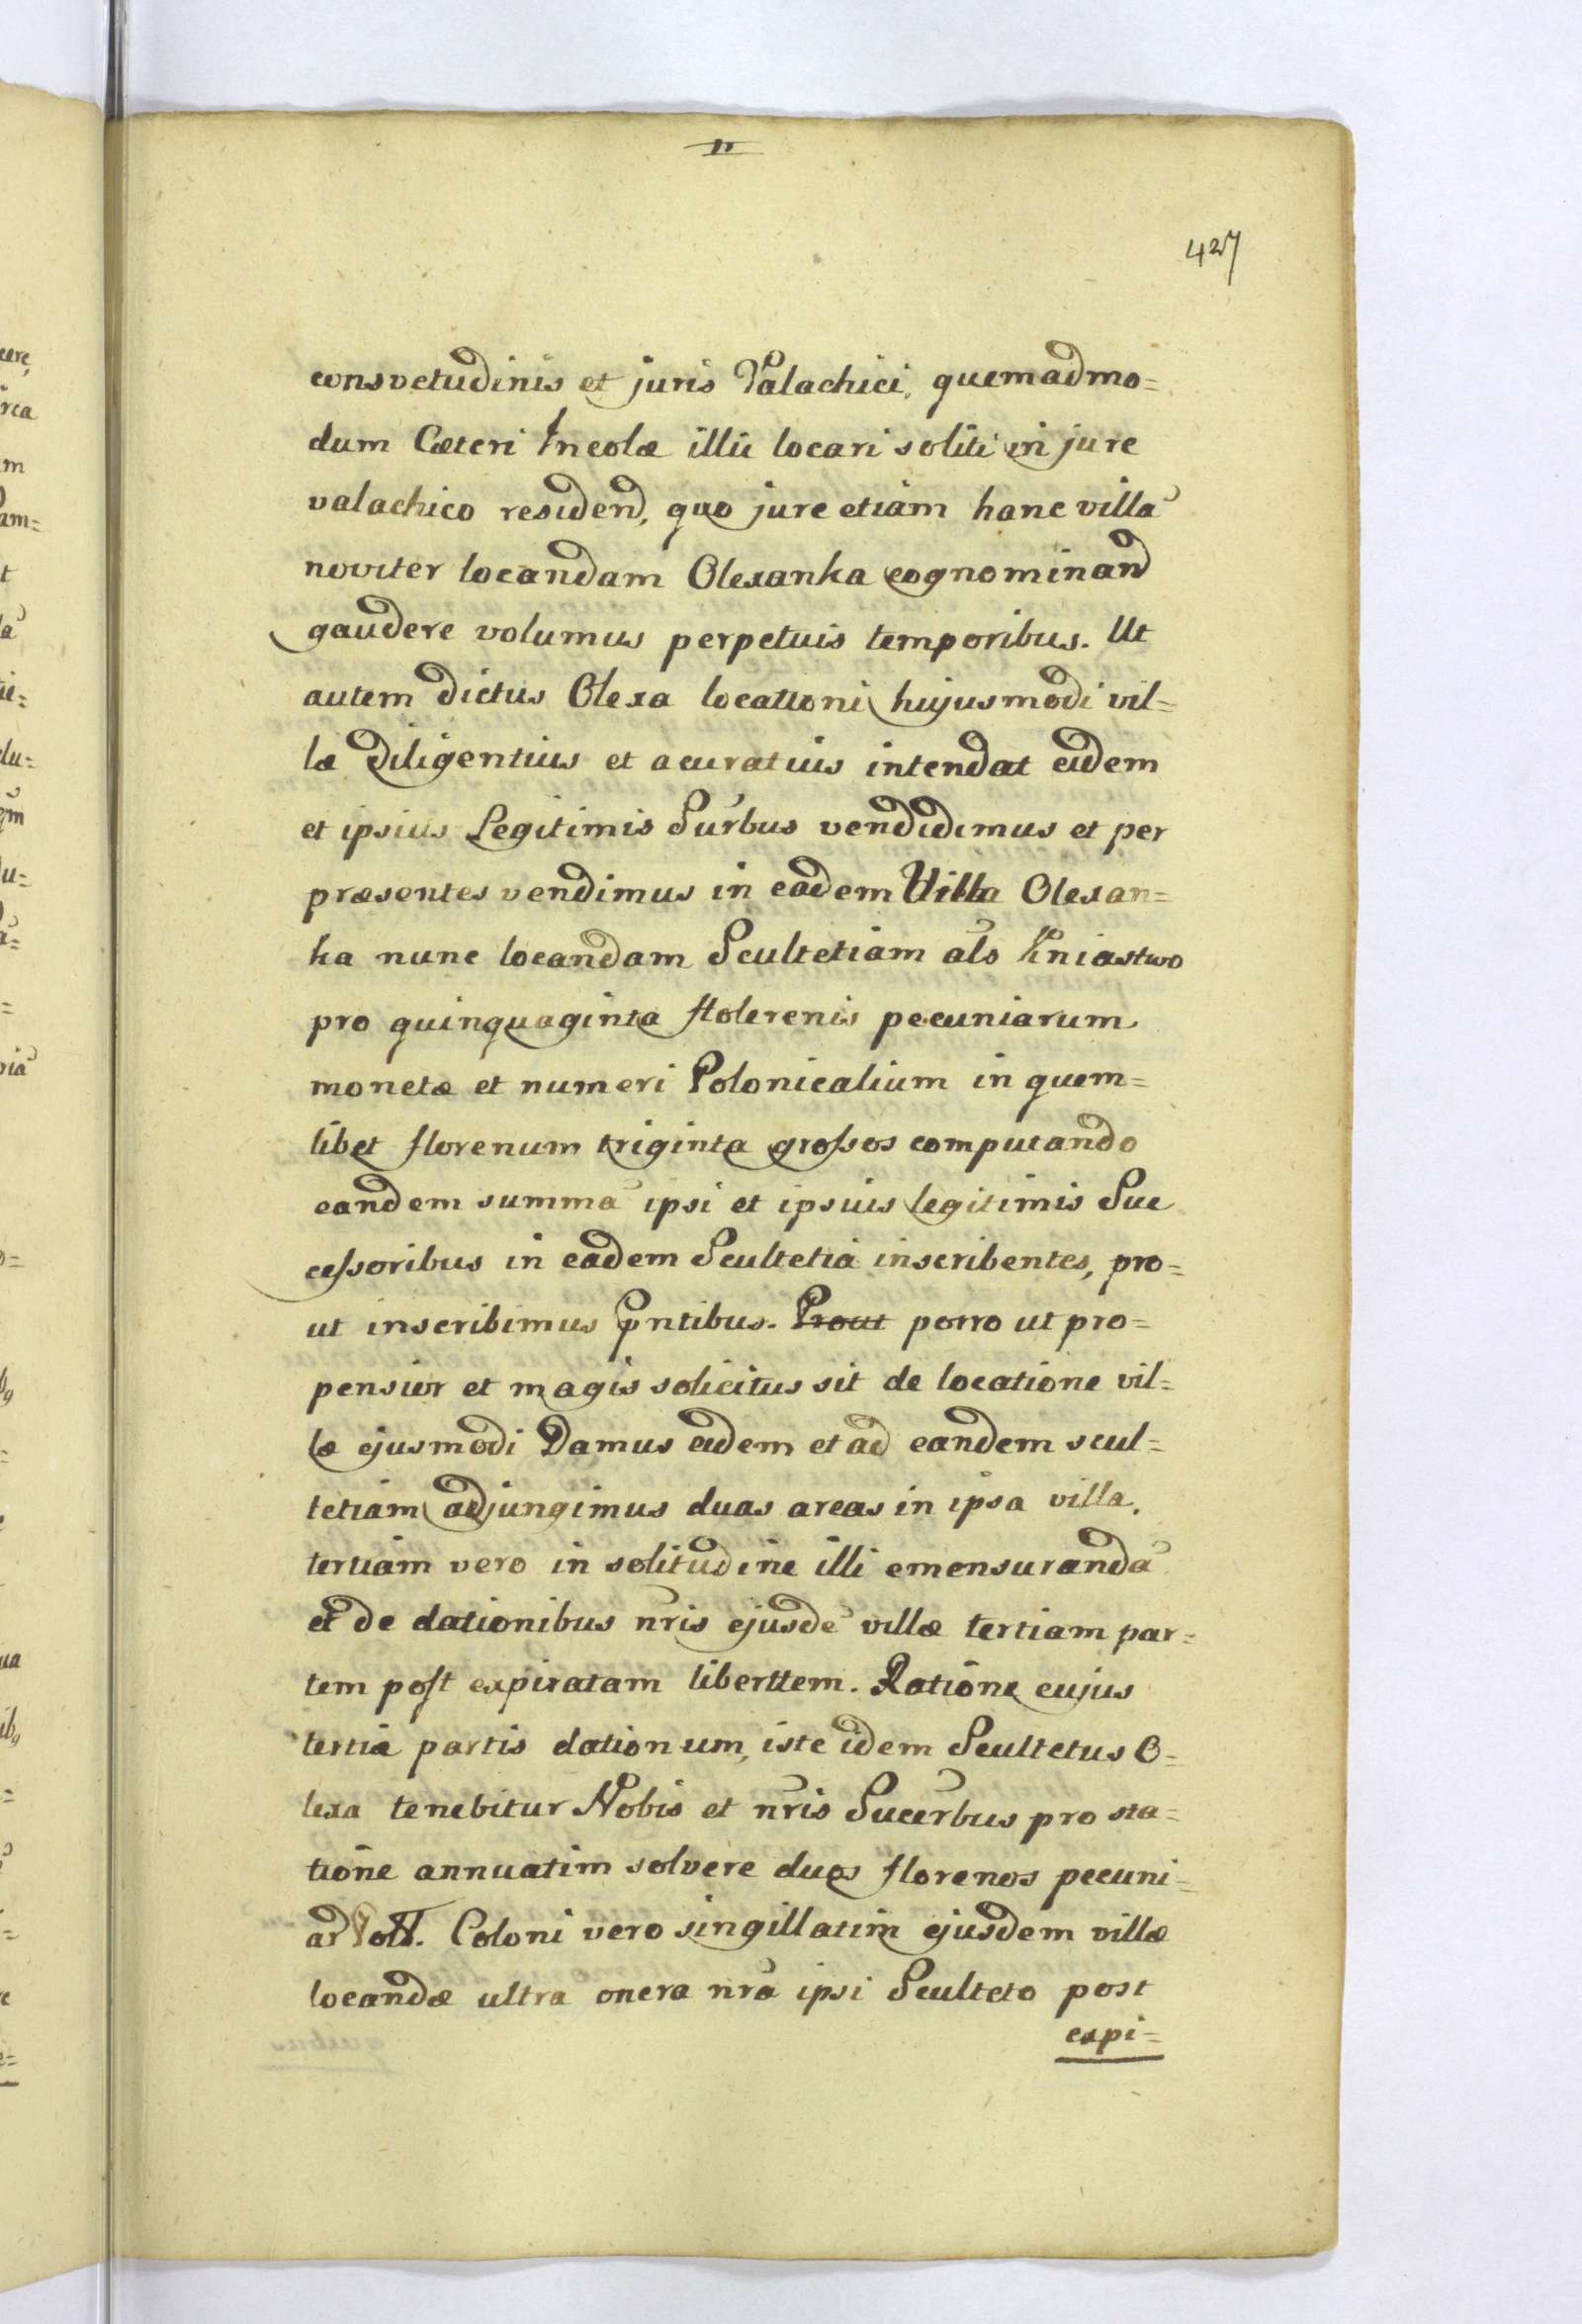 427
consvetudinis et juris Valachici, quemadmo=
dum Cæteri Incolæ illic locari soliti in jure
valachico residend, quo jure etiam hanc villā
noviter locandam Olexanka cognominand
gaudere volumus perpetuis temporibus. Ut
autem dictus Olexa locationi hujusmodi vil=
læ diligentius et acuratius intendat eidem
et ipsius Legitimis Surbus vendidimus et per
præsentes vendimus in eadem Villa Olexan=
ka nunc locandam Scultetiam als Kniastwo
pro quinquaginta flolerenis pecuniarum
monetæ et numeri Polonicalium in quem=
libet florenum triginta grossos computando
eandem summā ipsi et ipsius legitimis Suc
cessoribus in eadem Scultetia inscribentes, pro=
ut inscribimus pntibus. Prout porro ut pro=
pensior et magis solicitus sit de locatione vil=
læ ejusmodi Damus eidem et ad eandem scul=
tetiam adjungimus duas areas in ipsa villa,
tertiam vero in solitudine illi emensurandā
et de dationibus nris ejusdē villæ tertiam par=
tem post expiratam liberttem. Ratione cujus
tertiæ partis dationum, iste idem Scultetus O=
lexa tenebitur Nobis et nris Sucerbus pro sta=
tione annuatim solvere duos florenos pecuni=
ar Poll. Coloni vero singillatim ejusdem villæ
locandæ ultra onera nra ipsi Sculteto post
expi=